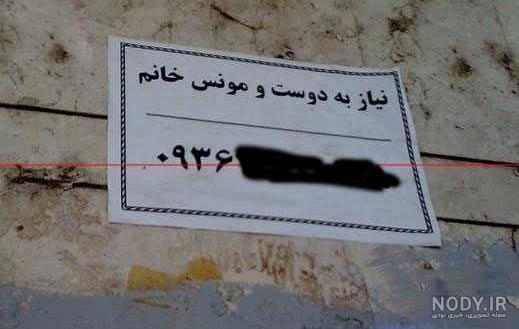 نیاز به دوست و مونس خانم
۰۹۳۶
NODY.IR
مجله تصویری، خبری نودی